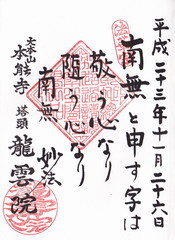 平成二十三年十一月二十六日
南無と申す字は
敬う心なり
随う心なり
南無妙法
大本山
本能寺
塔頭
龍雲院